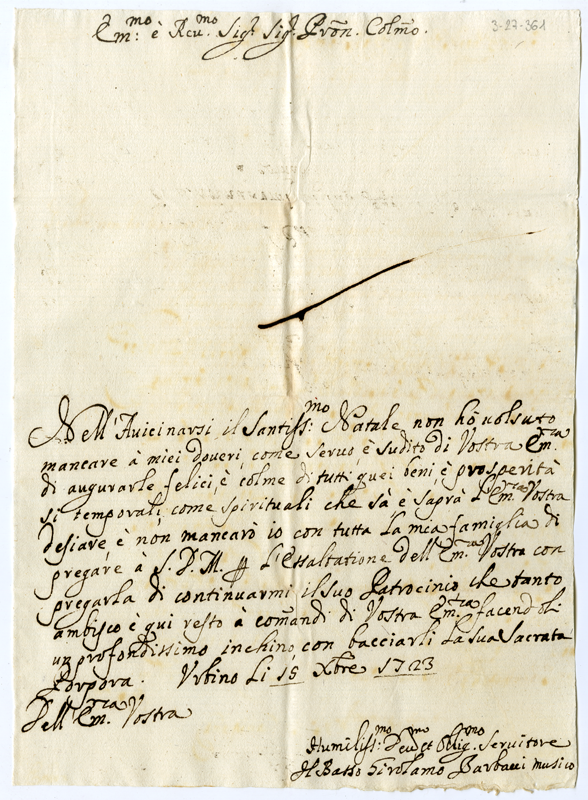 3-27-361
Em:mo è Reu.mo Sig.r Sig.r Prōn. Colmo.
Nell'Auicinarsi il Santiss:mo Natale non hò uolsuto
mancare à miei doueri come seruo, è sudito di Vostra Em.za
di augurarle felici, è colme di tutti quei beni è prosperità
si temporali come spirituali che sà è saprà l'Em.za Vostra
desiare è non mancarò io con tutta la mia famiglia di
pregare à S. D. M. L'Essaltatione dell'Em.za Vostra con
pregarla di continuarmi il suo Patrocinio che tanto
ambisco è qui resto à comādi di Vostra Em.za facendoli
un profondissimo inchino con bacciarli la sua Sacrata
Porpora. Vrbino Li 15 Xbre 1723
Dell'Em.za Vostra
Humiliss:mo Deu.mo et Oblig.mo Seruitore
Il Basso Girolamo Barbacci musico